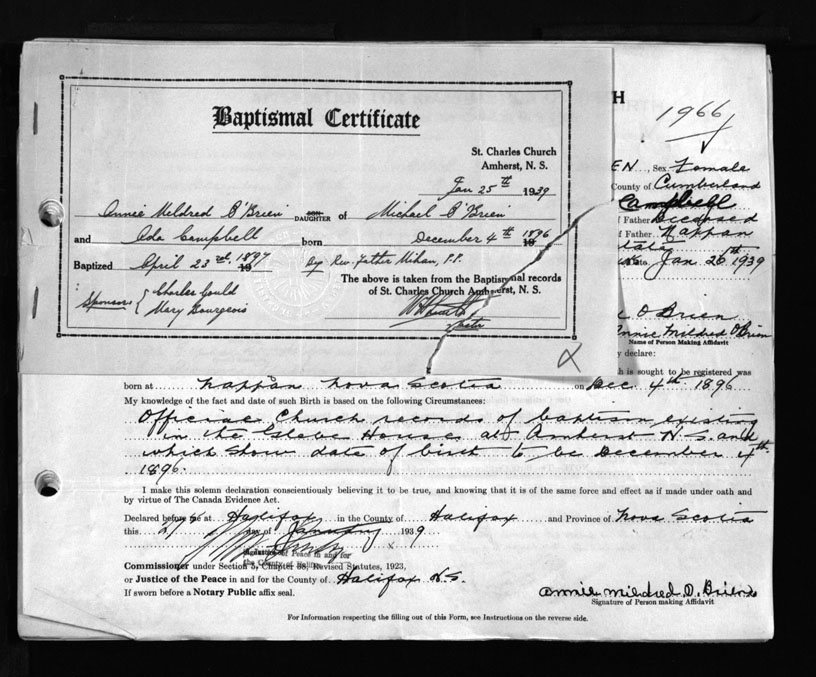 Baptismal Certificate
St. Charles Church
Amherst, N. S.
Jan 25th 1939
Annie Meldred O'Brien SON DAUGHTER of Michael O'Brien
and Ada Campbell born December 4th 1896
Baptized April 23rd 1897 by Rev. Father Mihan, P.P.
The above is taken from the Baptismal records
of St. Charles Church Amherst, N. S.
Sponsors { Charles Gould
Mary Bourgeois
H
1966
EN, Sex Female
County of Cumberland
Campbell
f Father Deceased
f Father Nappan
Date Jan 26th 1939
O Brien
Annie Mildred O'Brien
Name of Person Making Affidavit
y declare:
h is sought to be registered was
born at Nappan Nova Scotia on Dec. 4th 1896
My knowledge of the fact and date of such Birth is based on the following Circumstances:
Official Church records of baptism existing
in the Glebe House at Amherst N.S. and
which show date of birth to be December 4th.
1896.
I make this solemn declaration conscientiously believing it to be true, and knowing that it is of the same force and effect as if made under oath and
by virtue of The Canada Evidence Act.
Declared before me at Halifax in the County of Halifax and Province of Nova Scotia
this day of January 1939
Commissioner under Section 5, Chapter 38, Revised Statutes, 1923,
or Justice of the Peace in and for the County of Halifax N.S.
If sworn before a Notary Public affix seal.
Annie Mildred O'Brien
Signature of Person making Affidavit
For Information respecting the filling out of this Form, see Instructions on the reverse side.